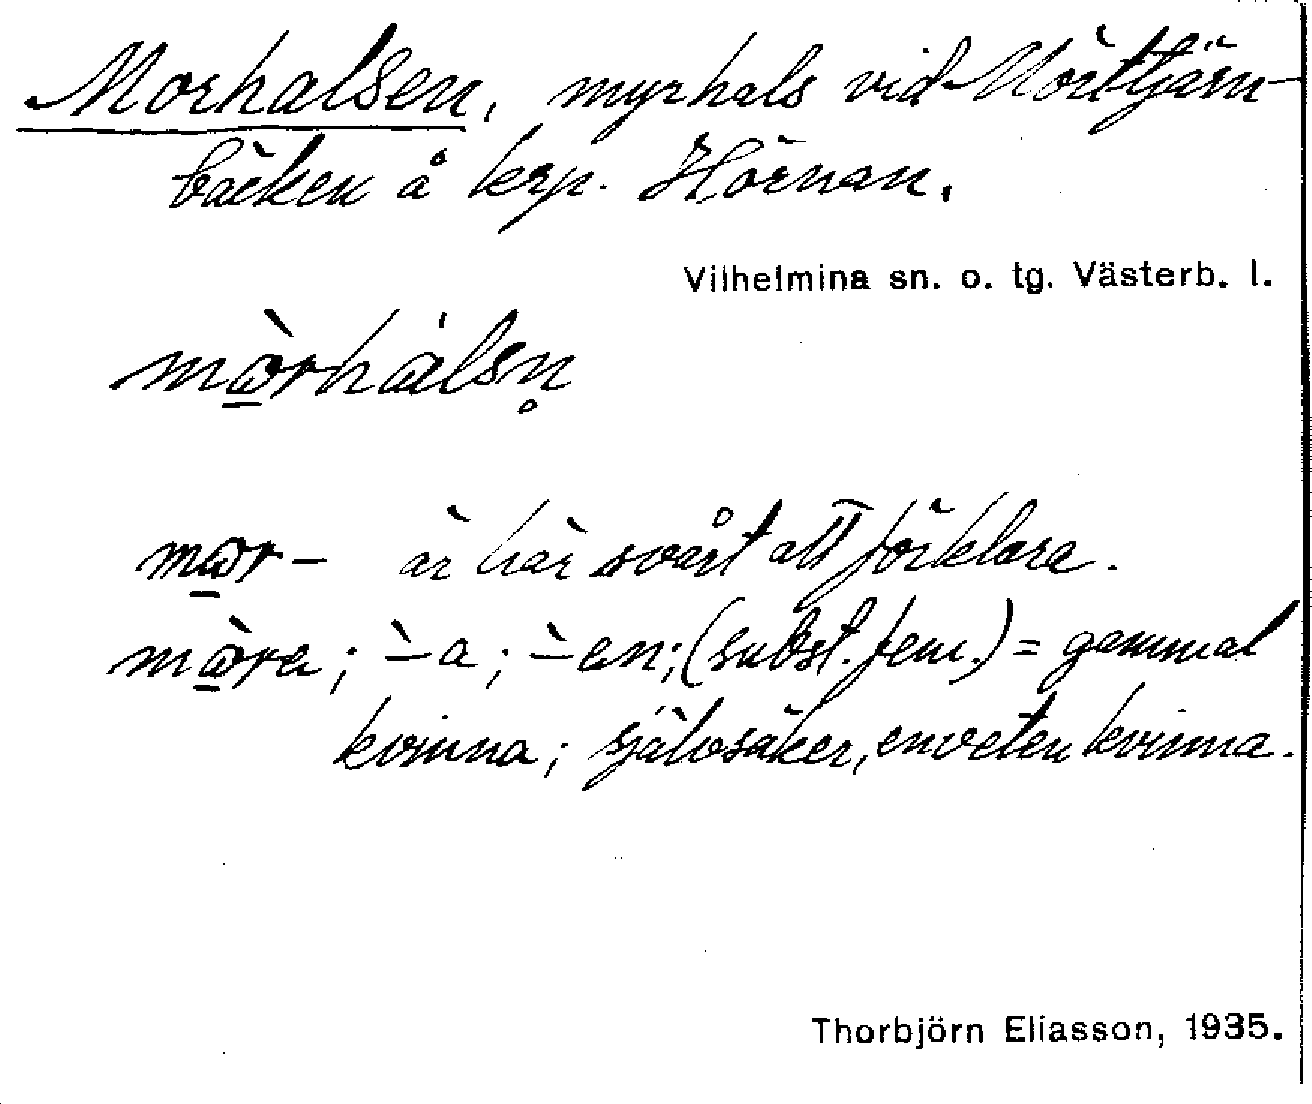 Morhalsen, myrhals vid Mörttjärn-
bäcken å krp. Hörnan.
Vilhelmina sn. o. tg. Västerb. l.
mò̲rhálsn̥
mo̲r- är här svårt att förklara.
mò̲ra; ∸̀a; ∸̀en; (subst. fem.) = gammal
kvinna; självsäker, enveten kvinna.
Thorbjörn Eliasson, 1935.